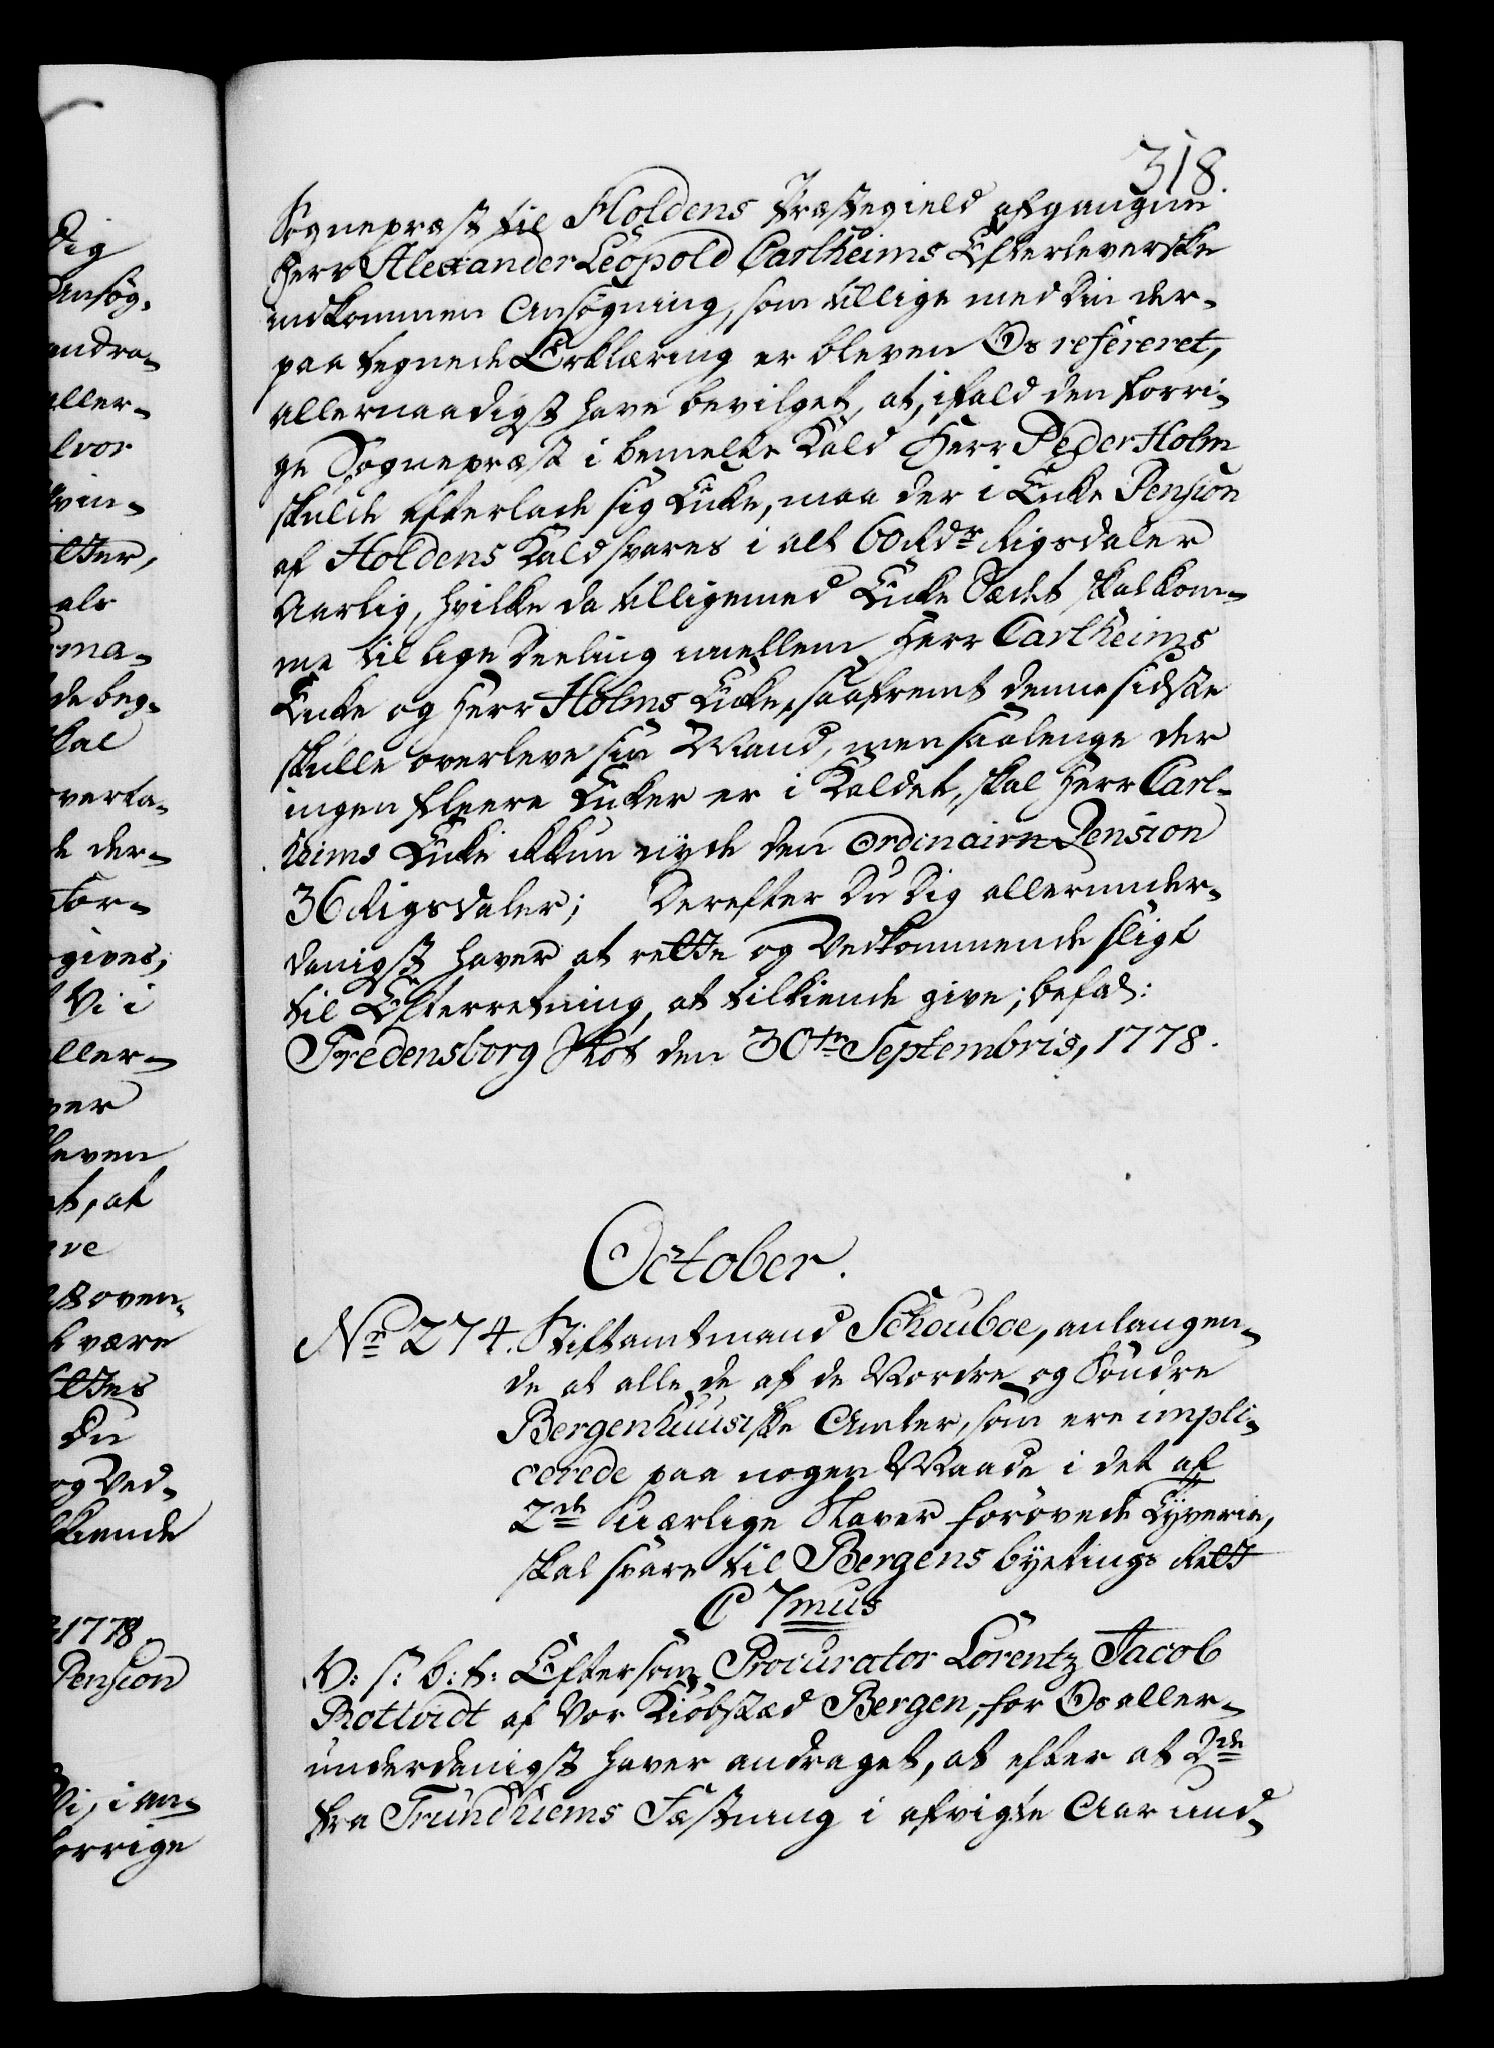 318.
Sognepræst til Holdens Præstegield afgangne
Herr Alexander Leopold Carlheims Efterleverske
indkommen Ansøgning, som tillige med Din der-
paa tegnede Erklæring er bleven Os refereret,
allernaadigst have bevilget, at, ifald den forri-
ge Sognepræst i bemelte Kald Herr Peder Holm
skulde efterlade sig Enke, maa der i Enke Pension
af Holdens Kald svares i alt 60 Rdr Rigsdaler
Aarlig, hvilke da tilligemed Enke Sædet skal kom-
me til lige Deeling imellem Herr Carlheims
Enke og Herr Holms Enke, saafremt denne sidste
skulle overleve sin Mand, men saalenge der
ingen fleere Enker er i Kaldet, skal Herr Carl-
heims Enke ikkun nyde den ordinaire Pension
36 Rigsdaler; Derefter Du Dig allerunder-
danigst haver at rette og Vedkommende sligt
til Efterretning, at tilkiende give; befal:
Fredensborg Slot den 30te Septembris, 1778.
October.
Nr 274. Stiftamtmand Schouboe, anlangen-
de at alle de af de Nordre og Søndre
Bergenhuusiske Amter, som ere impli-
cerede paa nogen Maade i det af
2de Uærlige Slaver forøvede Tyverie,
skal svare til Bergens byetings Rett
C 7mus
V: s: b: t: Eftersom Procurator Lorentz Jacob
Rottvidt af Vor Kiøbstæd Bergen, for Os aller-
underdanigst haver andraget, at efter at 2de
fra Trundhiems Fæstning i afvigte Aar und-
Dig
Ansøg-
andra-
aller-
vin-
als
ma-
skal
verta-
der-
for-
gives,
Vi i
aller-
at
oven-
være
Du
og Ved-
kiende
1778.
Pension
Vi, i an-
forrige